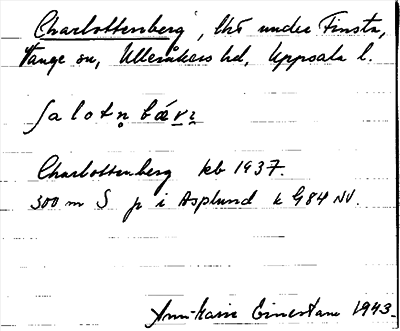 Charlottenberg, lht under Finsta,
Vänge sn, Ulleråkers hd, Uppsala l.
ʃalotn̥bærɪ
Charlottenberg kb 1937.
300 m S p i Asplund k G84 NV.
Ann-Karin 1943.